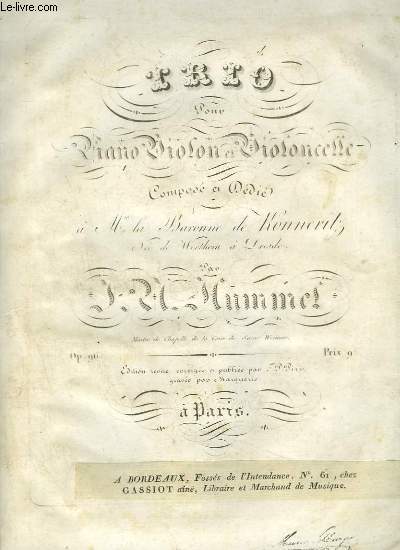 www.Le-Livre.com
TRIO
Pour
Piano Violon et Violoncelle
Composé et Dédié
à Mme la Baronne de Konneritz
Née de Werthern à Dresde.
Par
J. N. Hummel
Maître de Chapelle de la Cour de Saxe Weimar.
Op. 96. Prix 9
Edition revue corrigée et publiée par
gravée par
à Paris.
A BORDEAUX, Fossés de l'Intendance, N°. 61, chez
GASSIOT aîné, Libraire et Marchand de Musique.